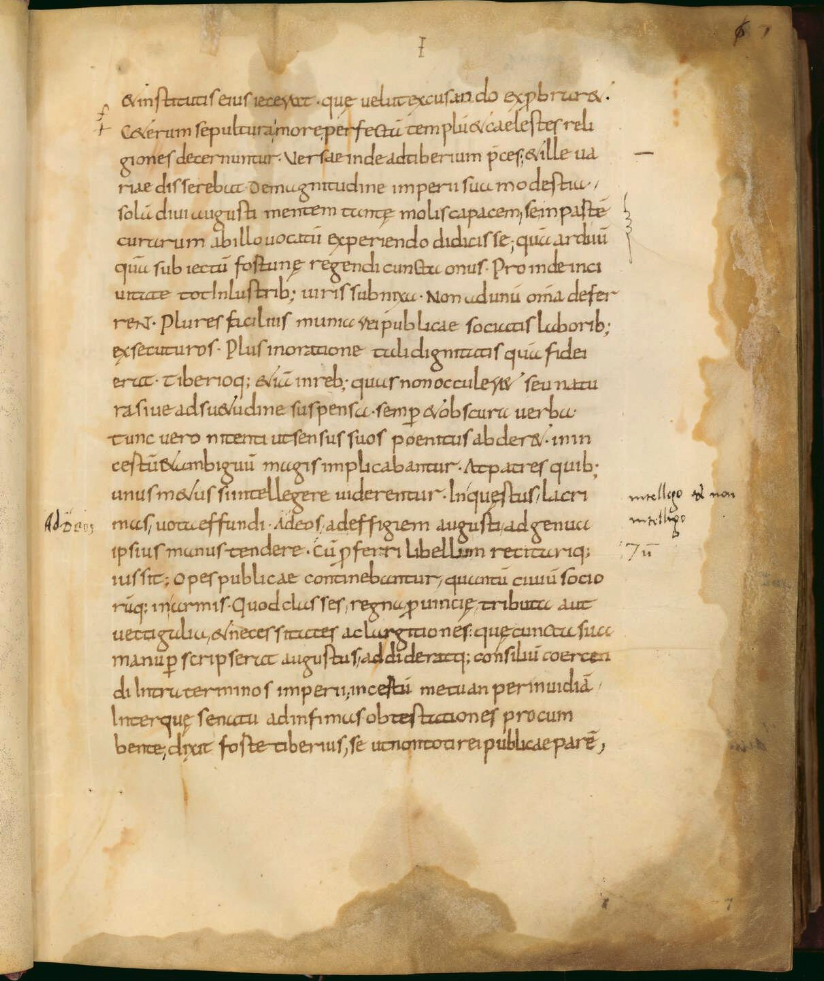 I
&institutis eius iecerat· quę velut excusando exprobrar&·
C&erum sepultura more perfectu templū & caelestes reli
giones decernuntur· Versae inde ad tiberium p̄ces; & ille va
riae disserebat De magnitudine imperii sua modestia·
solā divi augusti mentem tantę molis capacem, se in partē
curarum ab illo vocatū experiendo didicisse; quā arduū
quā subiectū fortunę regendi cuncta onus· Proinde in ci
vitate tot inlustrib; viris subnixa· Non ad unū om̄a defer
reN· Plures facilius munia rei publicae sociatis laborib;
exsecuturos· Plus in oratione tali dignitatis quā fidei
erat· Tiberioq; &iā in reb; quas non occuler& seu natu
ra sive adsu&udine suspensa· semp & obscura verba·
tunc vero nitenti ut sensus suos poenitus abder&· in in
cestū & ambiguū magis implicabantur· At patres quib;
unus m&us si intellegere viderentur· In questus, lacri
mas, vota effundi· Adeos, ad effigiem augusti, ad genua
ipsius manus tendere· Cū p̄ferri libellum recitariq;
iussit; Opes publicae continebantur, quantū civiū socio
rūq; in armis· Quod classes, regna, p̄vincię, tributa aut
vectigalia, & necessitates ac largitiones· quę cuncta sua
manu p scripserat augustus, addideratq; consiliū coercen
di Intra terminos imperii, incestū metu an per invidiā·
Interquę senatu ad infimas obtestationes procum
bente; dixit forte tiberius, se ut non toti rei publicae parē,
intellego & non
intelligo
Ad Deos